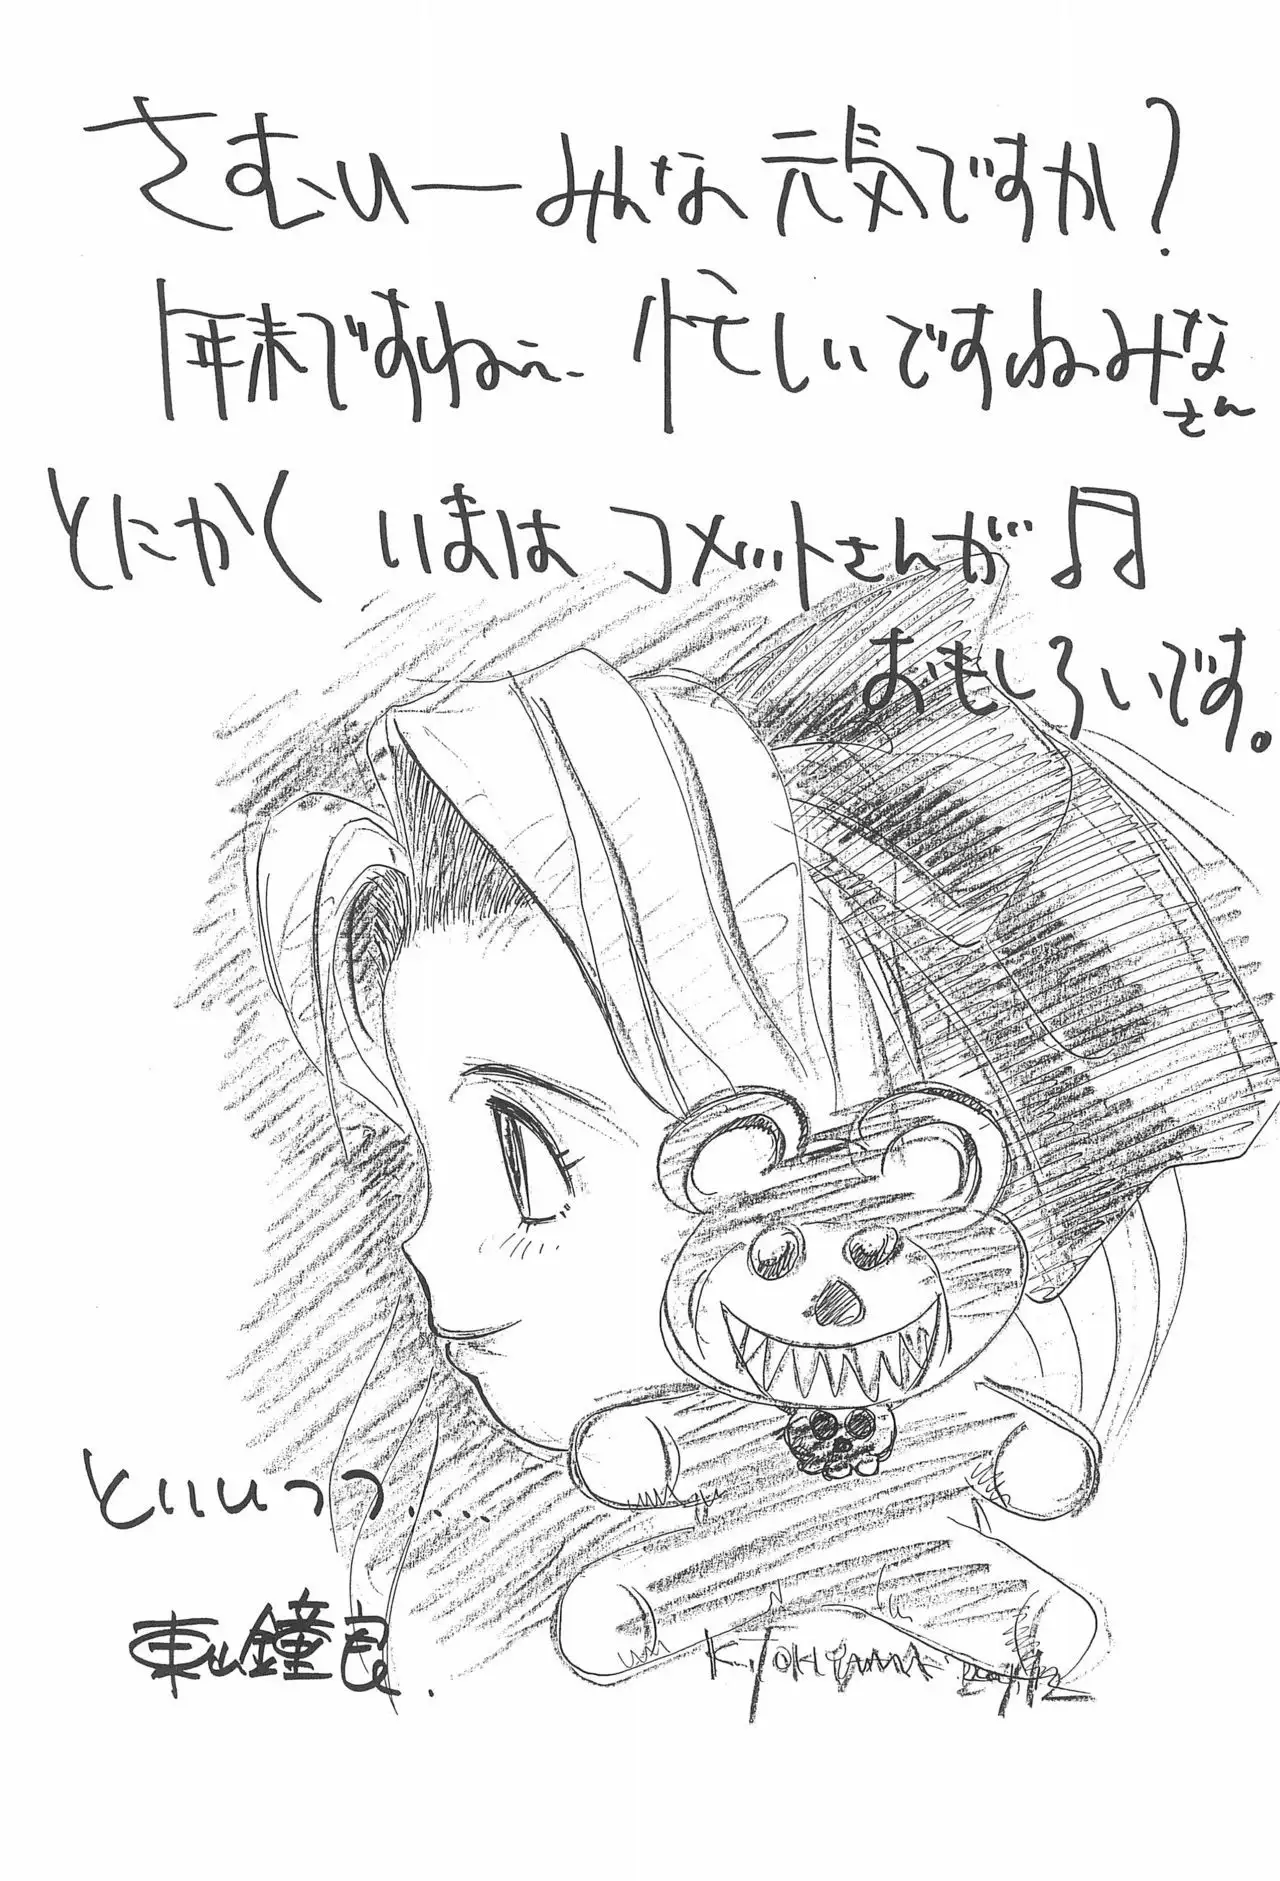 さむいーみんな元気ですか?
年末ですねぇ… 忙しいですねみなさん
とにかく いまは コメットさんが♫
おもしろいです。
といいつつ……
東山鐘良.
K.TOHYAMA